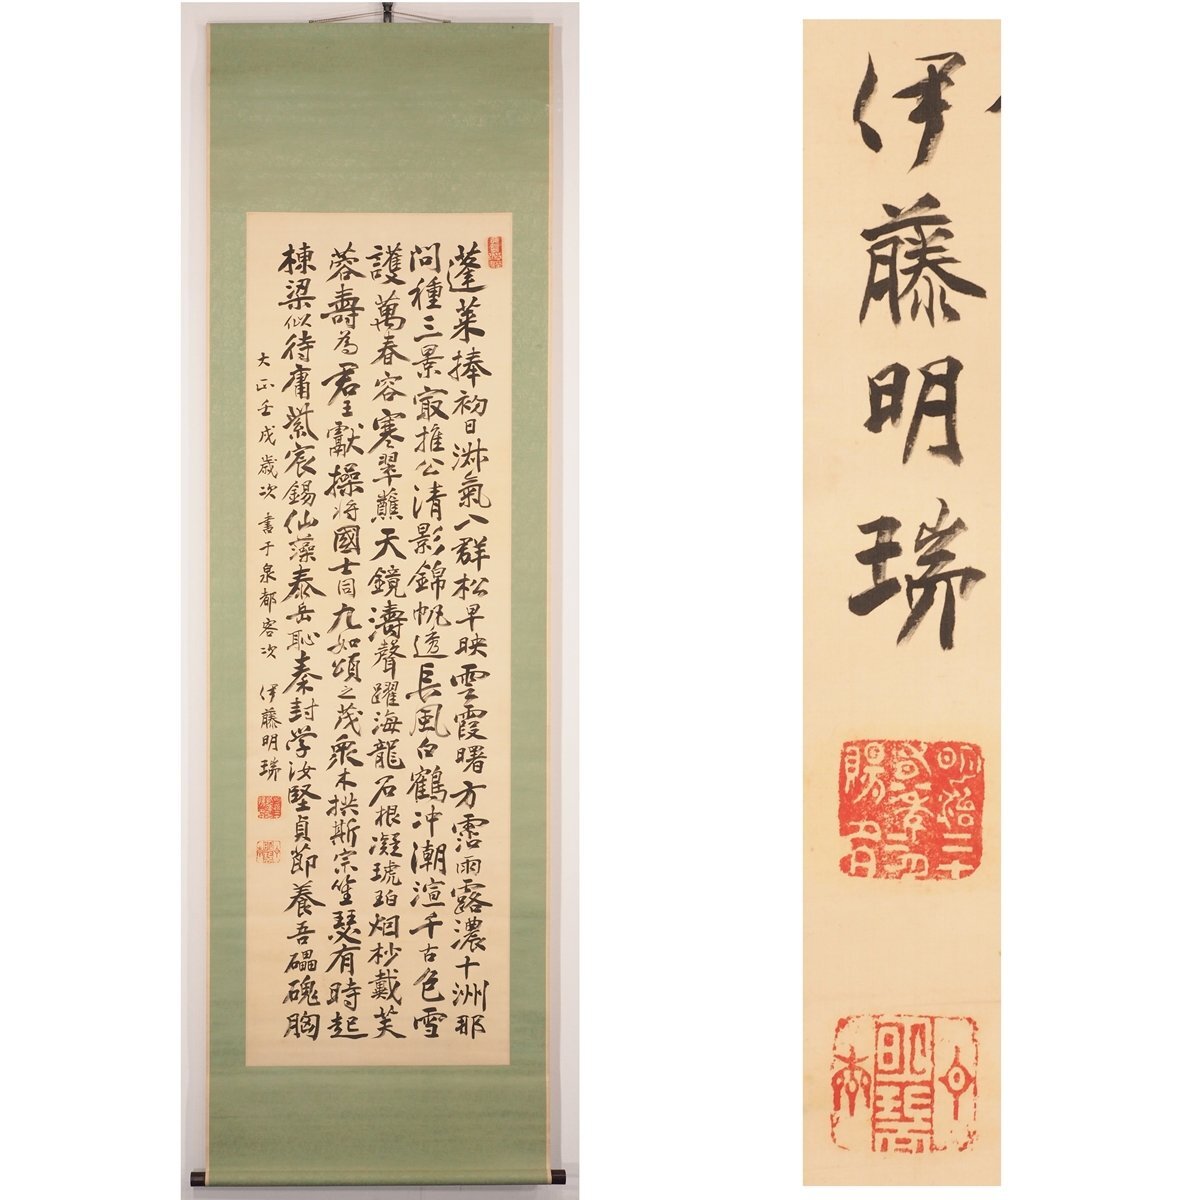 蓬萊捧初日淋氣八群松早映雲霞曙方霑雨露濃十洲那
問種三景寂推公清影錦帆透長風白鶴冲潮渲千古色雪
護萬春容寒翠蘸天鏡濤聲躍海龍石根凝琥珀烟杪戴芙
蓉壽為君王獻操将國士同九如頌之茂衆木拱斯宗笙瑟有時起
棟梁似待庸紫宸錫仙藻泰岳恥秦封学汝堅貞節養吾礧磈胸
大正壬戌歳次書于泉都客次 伊藤明瑞
伊藤明瑞
明治三十
賜名
明瑞